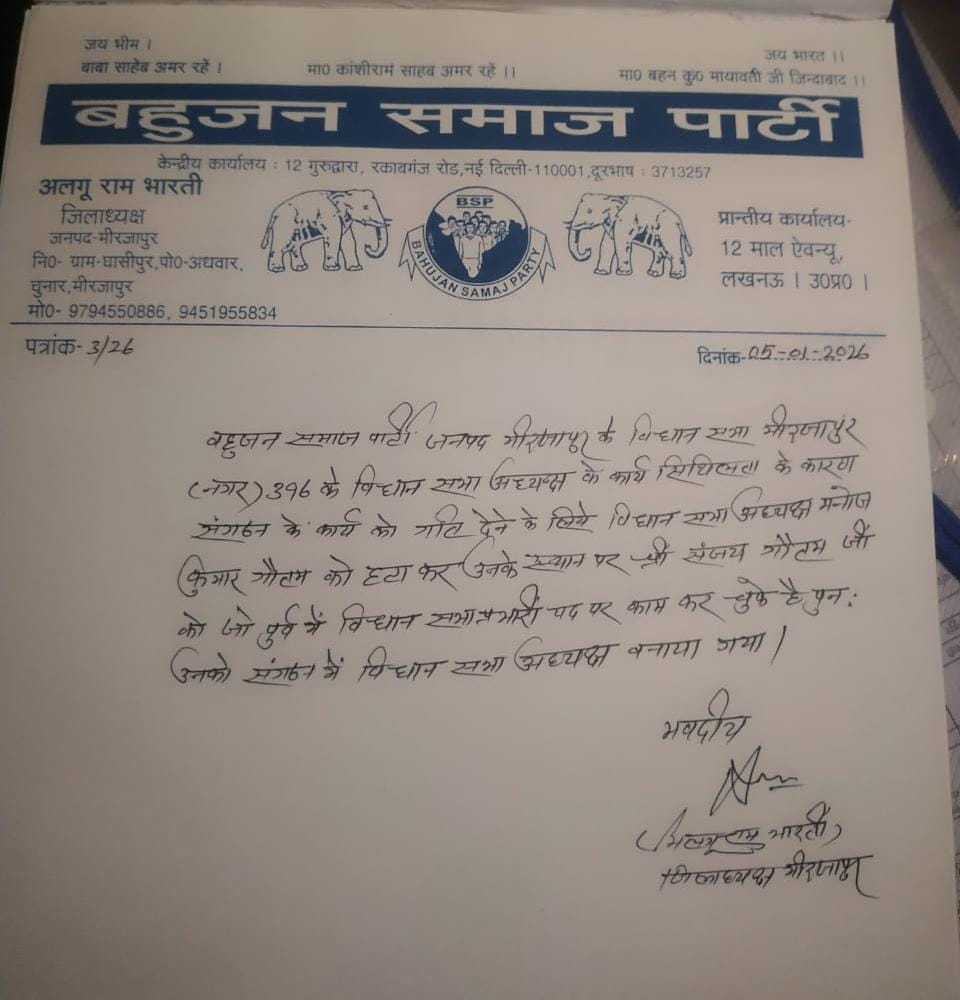 जय भीम ।
बाबा साहेब अमर रहें ।
मा0 कांशीराम साहब अमर रहें ।।
जय भारत ।।
मा0 बहन कु0 मायावती जी जिन्दाबाद ।।
बहुजन समाज पार्टी
केन्द्रीय कार्यालय : 12 गुरुद्वारा, रकाबगंज रोड,नई दिल्ली-110001,दूरभाष : 3713257
अलगू राम भारती
जिलाध्यक्ष
जनपद-मीरजापुर
नि0- ग्राम-घासीपुर,पो0-अधवार,
चुनार,मीरजापुर
मो0- 9794550886, 9451955834
BSP
BAHUJAN SAMAJ PARTY
प्रान्तीय कार्यालय-
12 माल ऐवन्यू,
लखनऊ । उ0प्र0 ।
पत्रांक- 3/26
दिनांक-05-01-2026
बहुजन समाज पार्टी जनपद मीरजापुर के विधान सभा मीरजापुर
(नगर) 396 के विधान सभा अध्यक्ष के कार्य सिथिलता के कारण
संगठन के कार्य को गति देने के लिये विधान सभा अध्यक्ष मनोज
कुमार गौतम को हटा कर उनके स्थान पर श्री संजय गौतम जी
को जो पुर्व में विधान सभा प्रभारी पद पर काम कर चुके है पुन:
उनको संगठन में विधान सभा अध्यक्ष बनाया गया।
भवदीय
(अलगू राम भारती)
जिलाध्यक्ष मीरजापुर